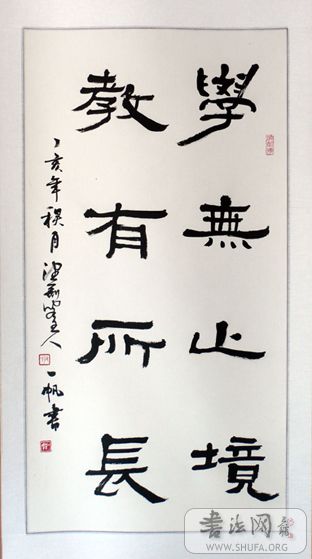 學無止境
教有所長
丁亥年
一帆書
書法网
WWW.SHUFA.ORG